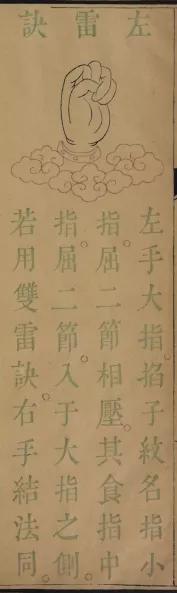 左雷訣
左手大指掐子紋名指小
指。屈二節相壓。其食指中
指。屈二節。入于大指之側。
若用雙雷訣。右手結法同。